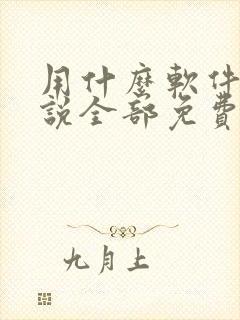 用什麼軟件
說全部免費
九月上